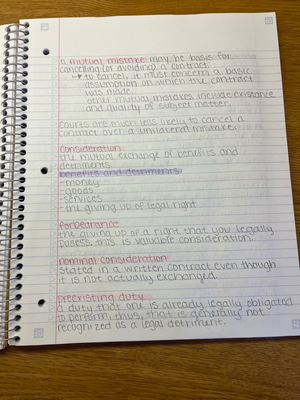 a mutual mistake may be basis for
cancelling (or avoiding) a contract.
→ to cancel, it must concern a basic
assumption on which the contract
was made.
other mutual mistakes include existance
and quality of subject matter.
courts are much less likely to cancel a
contract over a unilateral mistake.
consideration
the mutual exchange of benefits and
detriments.
benefits and detriments
-money
-goods
-services
-the giving up of legal right
forbearance
the giving up of a right that you legally
posess. this is valuable consideration.
nominal consideration
stated in a written contract even though
it is not actually exchanged.
preexisting duty
a duty that one is already legally obligated
to perform, thus, that is generally not
recognized as a legal detriment.